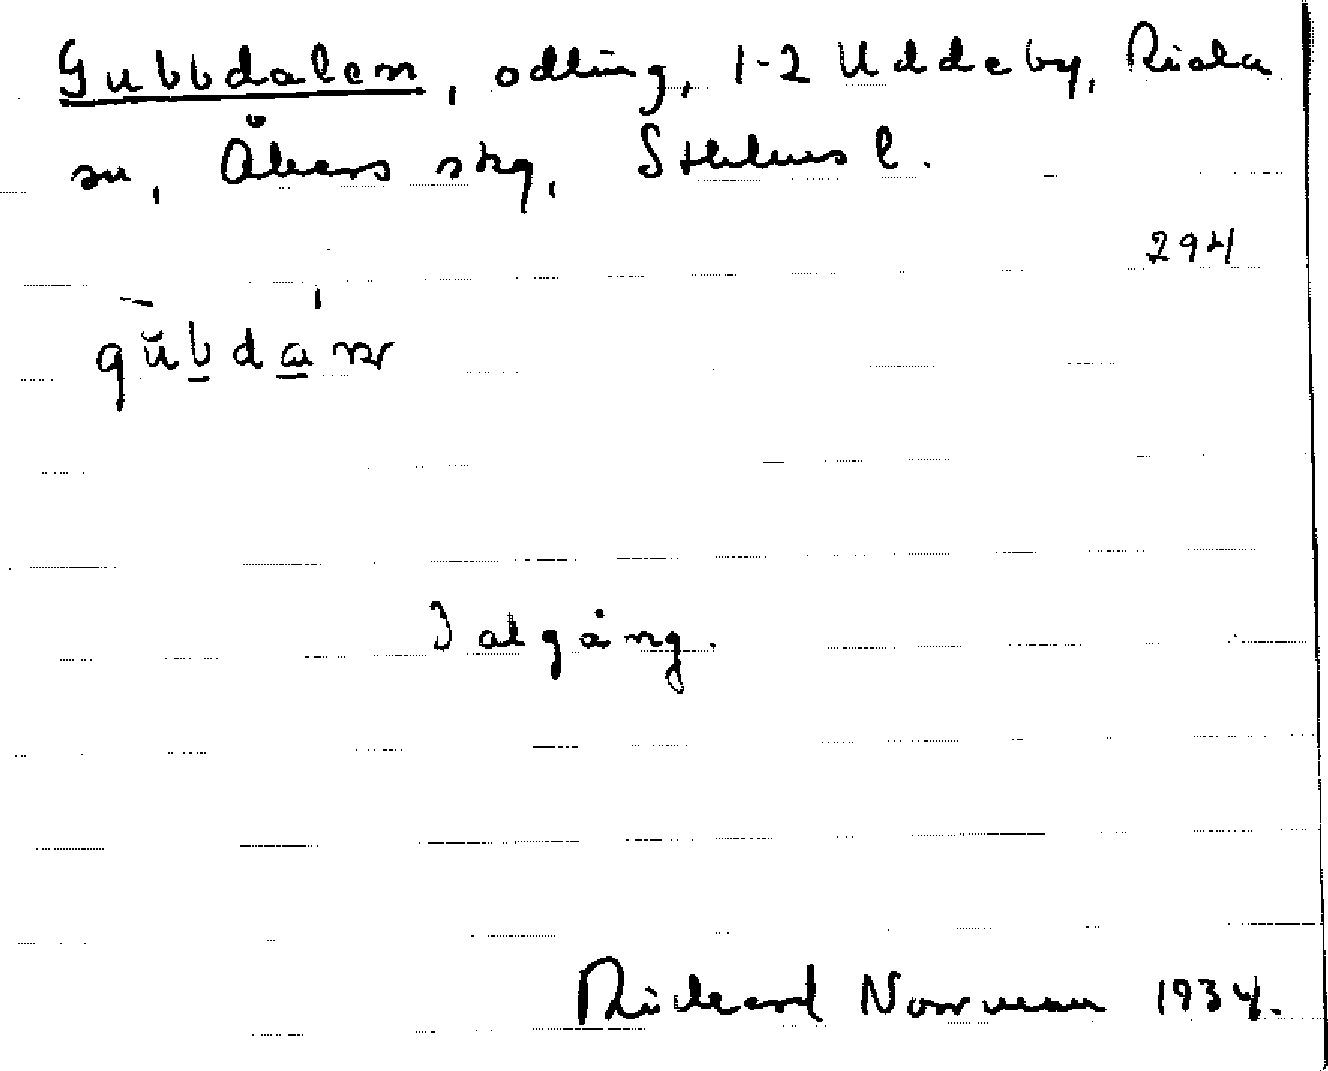 Gubbdalen, odling, 1-2 Uddeby, Riala
sn, Åkers skg, Sthlms l.
294
I algång.
Rickard Norrman 1934.